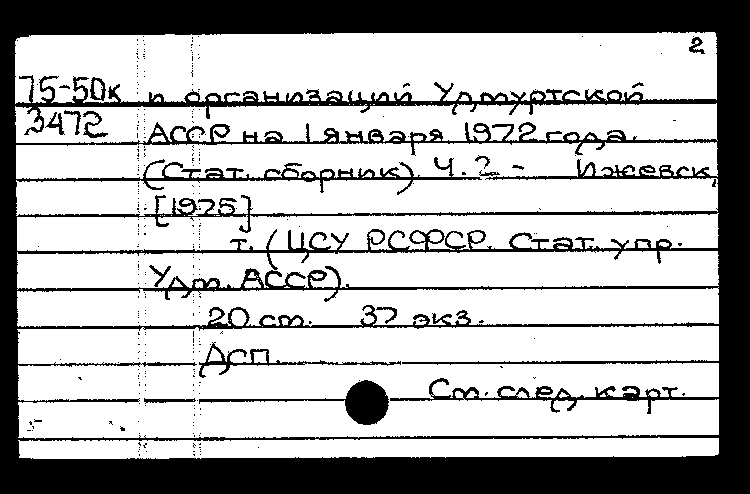 2
75-50к и организаций Удмуртской
3472 АССР на 1 января 1972 года.
(Стат. сборник) Ч. 2 - Ижевск,
[1975]
т. (ЦСУ РСФСР. Стат. упр.
Удм. АССР).
20 см. 37 экз.
Дсп.
См. след. карт.